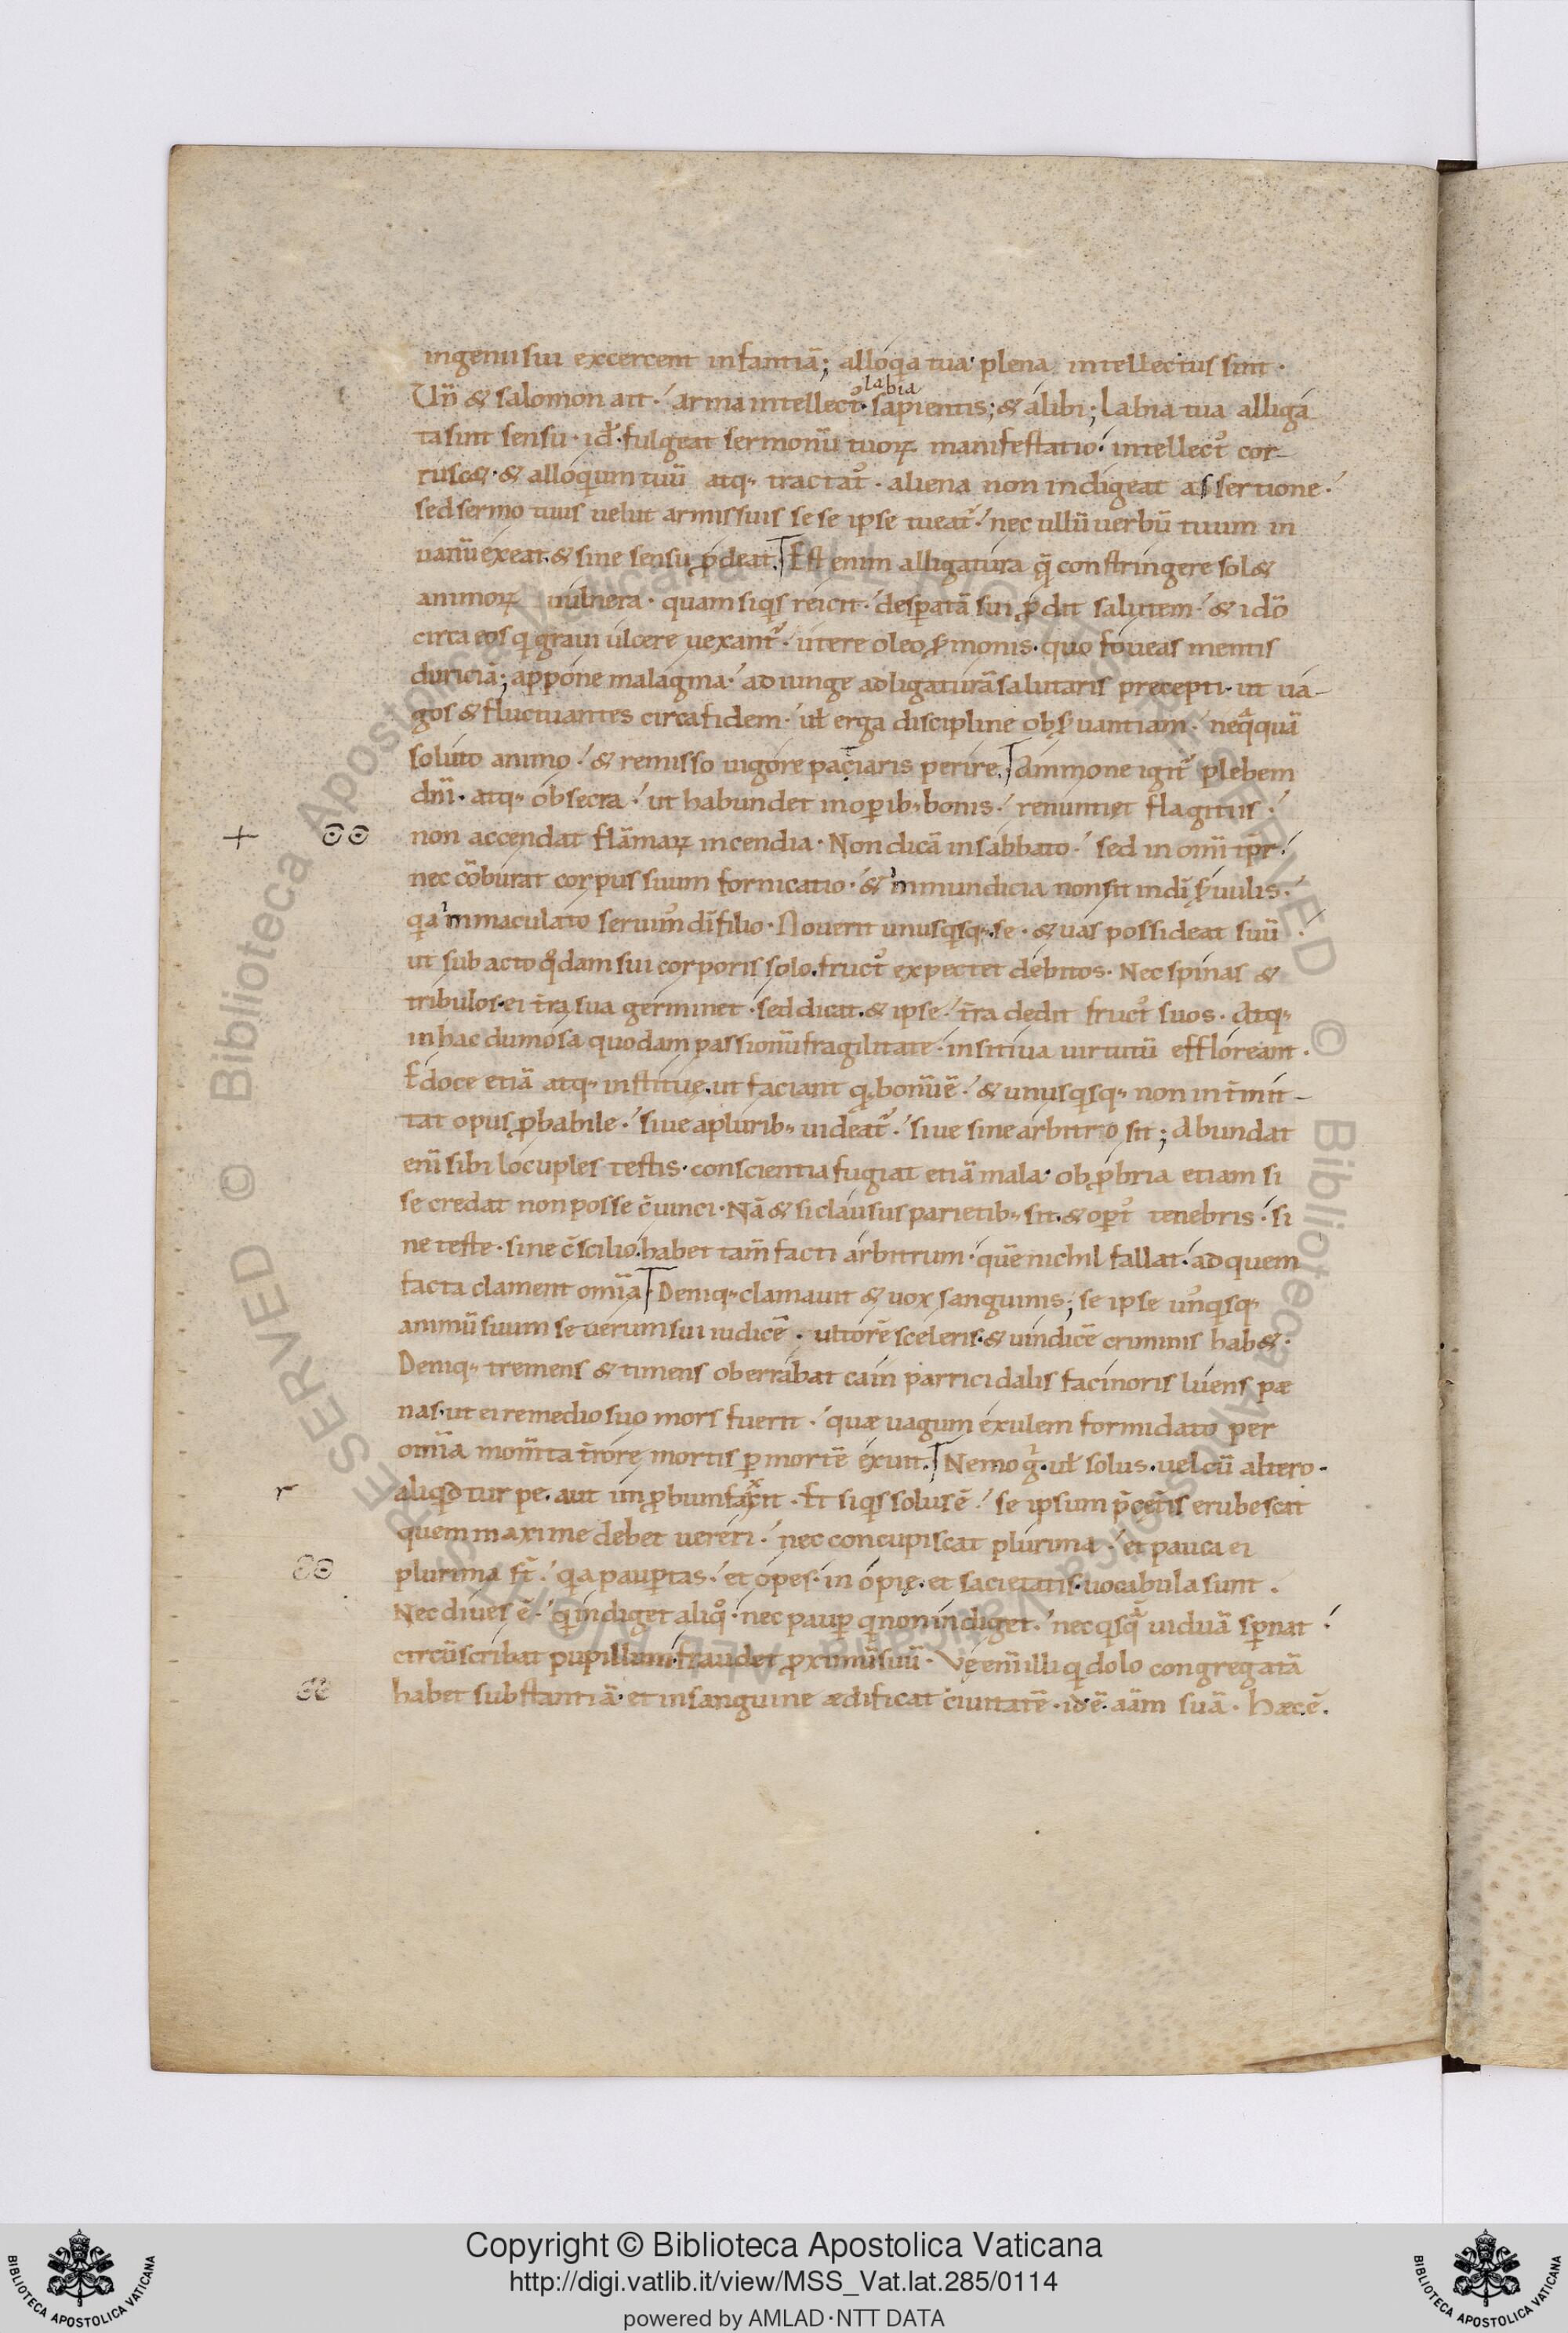 ingenii sui excercent infantiā; alloq̇a tua plena intellectus sint·
Uñ & salomon ait· arma intellect᷒· labia sapientis; & alibi; Labia tua alliga
ta sint sensu· id ē· fulgeat sermonū tuoꝝ manifestatio· intellect᷒ cor-
rusc&· & alloq̇um tuū atq· tractat᷒· aliena non indigeat assertione·
sed sermo tuus uelut armis suis se se ipse tueat᷒· nec ullū uerbū tuum in
uanū exeat· & sine sensu ꝓdeat. Est enim alligatura q̄ constringere sol&
animoꝝ uulnera· quam siq̇s reicit· desperatā sui ꝓdit salutem· & idō
circa eos q̇ graui ulcere uexant᷒· utere oleo s̄monis· quo foueas mentis
duriciā; appone malagma· adiunge adligaturā salutaris precepti· ut ua-
gos & fluctuantes circa fidem· ut̄ erga discipline obs̄uantiam· neq̄quā
soluto animo· & remisso uigore paciaris perire. Ammone igit᷒ plebem
dm̄i· atq· obsecra· ut habundet in oꝑib· bonis· renuntiet flagitiis·
+ non accendat flāmaꝝ incendia· Non dicā in sabbato· sed in omī tp̄r·
nec cōburat corpus suum fornicatio· & inmundicia non sit in dī s̄uulis·
q̇a inmaculato seruim᷒ dī filio· Nouerit unusq̇sq· se· & uas possideat suū
ut subacto q̊dam sui corporis solo· fruct᷒ expectet debitos· Nec spinas &
tribulos ei t̄ra sua germinet· sed dicat· & ipse· t̄ra dedit fruct᷒ suos· Atq·
in hac dumosa quodam passionū fragilitate· insitiua uirtutū effloreant·
Edoce etiā atq· institue· ut faciant q̇ bonū ē· & unusq̇sq· non int̄mit-
tat opus ꝓbabile· siue a plurib· uideat᷒· siue sine arbitro sit; Abundat
enī sibi locuples testis· conscientia fugiat etiā mala obꝓbria etiam si
se credat non posse c̄uinci· Nā & si clausus parietib· sit· & oꝑt᷒ tenebris· si
ne teste· sine c̄scilio· habet tam̄ facti arbitrum· quē nichil fallat· ad quem
facta clament om̄ia Deniq· clamauit & uox sanguinis; se ipse un᷒q̇sq·
animū suum se uerum sui iudicē· ultorē sceleris· & uindicē criminis hab&·
Deniq· tremens & timens oberrabat cain parricidalis facinoris luens pæ
nas· ut ei remedio suo mors fuerit· quæ uagum exulem formidato per
om̄ia mom̄ta t̄rore mortis ꝑ mortē exuit. Nemo g̊· ut̄ solus· uel cū altero·
r aliq̇d turpe· aut imꝓbum faxit· Et siq̇s solus ē· se ipsum p̄ cet̄is erubescat
quem maxime debet uereri· nec concupiscat plurima· et pauca ei
plurima st̄· q̇a pauꝑtas· et opes· inopię· et sacietatis uocabula sunt·
Nec diues ē· q̇ indiget aliq̊· nec pauꝑ q̇ non indiget· nec q̇sq̄ uiduā sꝑnat·
circūscribat pupillum· fraudet ꝓximū suū· Vę enī illi q̇ dolo congregatā
habet substantiā· et in sanguine ædificat ciuitatē· id ē· aām suā· Hæc ē·
Copyright © Biblioteca Apostolica Vaticana
http://digi.vatlib.it/view/MSS_Vat.lat.285/0114
powered by AMLAD·NTT DATA